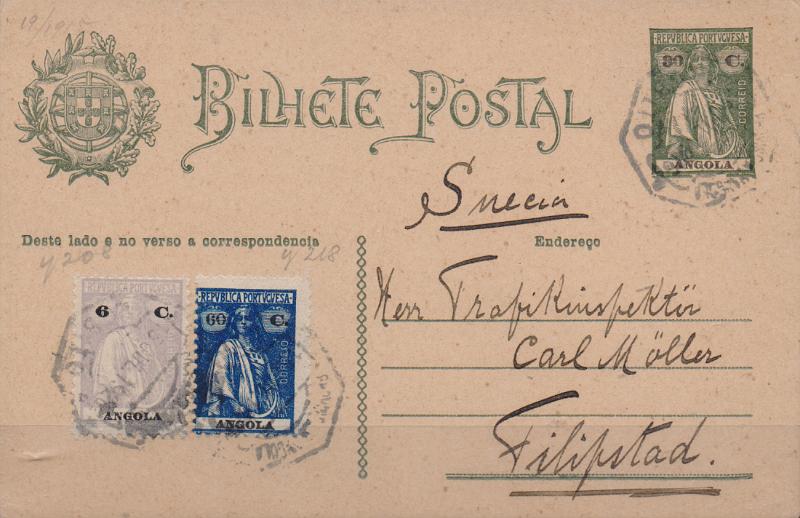 19/1925
BILHETE POSTAL
REPVBLICA PORTVGVESA
30 C.
CORREIO
ANGOLA
Suecia
Deste lado e no verso a correspondencia
Endereço
y 208
y 218
REPVBLICA PORTVGVESA
6 C.
ANGOLA
REPVBLICA PORTVGVESA
60 C.
CORREIO
ANGOLA
Herr Trafikinspektör
Carl Möller
Filipstad.